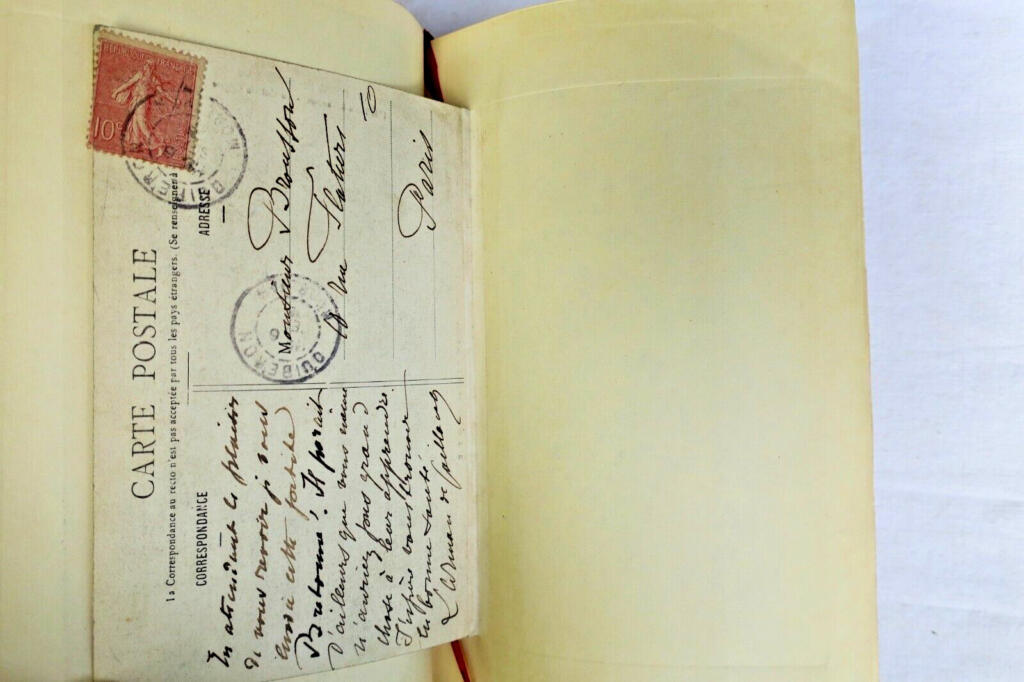 CARTE POSTALE
la Correspondance au recto n'est pas acceptée par tous les pays étrangers. (Se renseigner à
CORRESPONDANCE
ADRESSE
RÉPUBLIQUE FRANÇAISE
10c
QUIBERON
QUIBERON
En attendant le plaisir
de vous revoir je vous
envoie cette
Bretonne! Il paraît
d'ailleurs que vous même
n'auriez pas grand
chose à leur apprendre.
J'espère vous trouver
en bonne santé
de Caillavet
Monsieur Brousson
rue Flatters
Paris